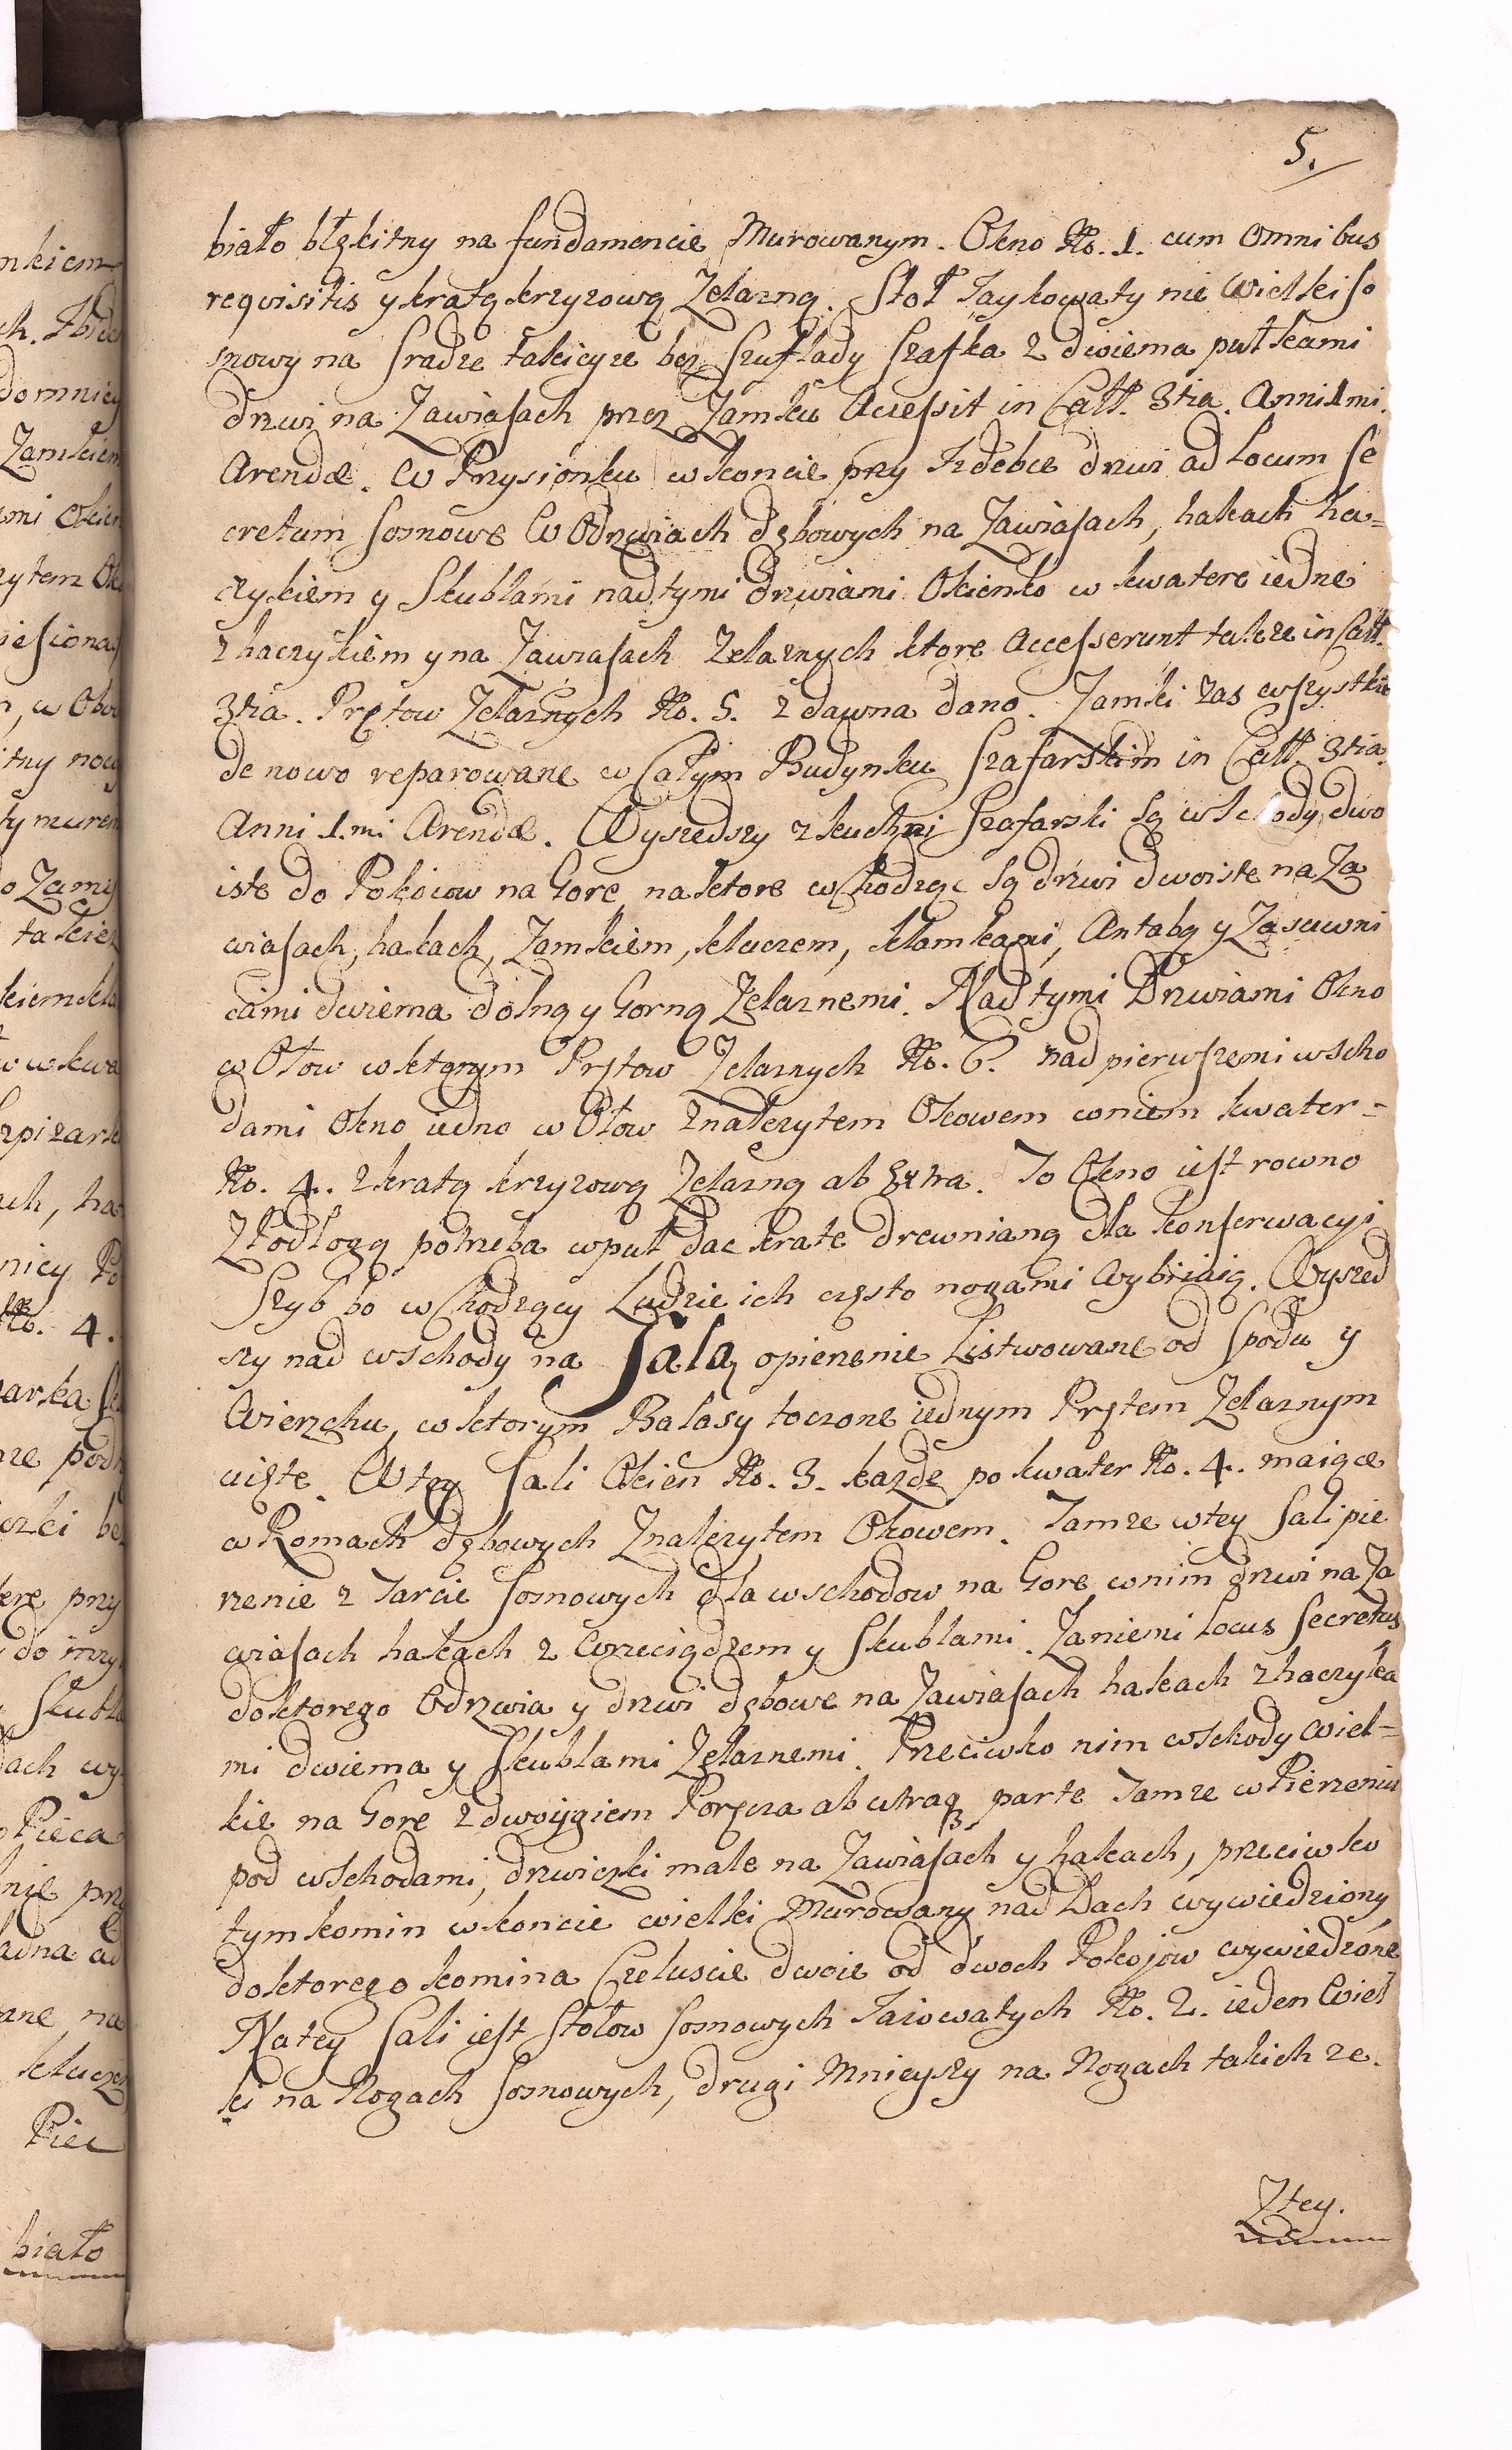 5.
biało błękitny na fundamencie Murowanym. Okno No. 1. cum omnibus
requisitis y kratą krzyzową Zelazną. Stoł Taykowaty nie wielki so
snowy na sradze takieyze bez Szuflady szafka z dwiema pułkami
drzwi na Zawiasach przez Zamku Accessit in Catt. 3tia. Anni 1mi.
Arendæ. W Przysionku w koncie przy Izdebce drzwi ad Locum Se
cretum sosnowe W Odrzwiach dębowych na Zawiasach, hakach ha=
czykiem y Skublami nad tymi drzwiami Okienko w kwaterę iednę
z haczykiem y na Zawiasach Zelaznych ktore Accesserunt takze in Catt.
3tia. Prętow Zelaznych No. 5. z dawna dano. Zamki zas wszystkie
de novo reparowane w Całym Budynku Szafarskim in Catt. 3tia.
Anni 1.mi Arendæ. Wyszedszy z kuchni Szafarski są wschody dwo
iste do Pokoiow na Gorę, na ktore wchodząc są drzwi dwoiste na Za
wiasach, hakach, Zamkiem, kluczem, klamkami, Antabą y Zasuwni
cami dwiema dolną y Gorną Zelaznemi. Nad tymi Drzwiami Okno
w Ołow w ktorym Prętow Zelaznych No. 6. nad pierwszemi wscho
dami Okno iedno w Ołow z nalezytem Okowem w niem kwater=
No. 4. z kratą krzyzową Zelazną ab Extra. To Okno iest rowno
z Podłogą potrzeba w puł dac kratę drewnianą dla konserwacyi
Szyb bo wchodzący Ludzie ich często nogami wybiiaią. Wyszed
szy nad wschody na Salą opierzenie Listwowane od spodu y
Wierzchu, w ktorym Balasy toczone iednym Prętem Zelaznym
uięte. W tey Sali Okien No. 3. kazde po kwater No. 4. maiące
w Romach dębowych z nalezytem Okowem. Tamze w tey Sali pie
rzenie z Tarcic sosnowych dla wschodow na Gorę w nim drzwi na Za
wiasach hakach z wrzeciądzem y Skublami. Zaniemi Locus Secretus
do ktorego Odrzwia y drzwi dębowe na Zawiasach hakach z haczyka
mi dwiema y Skublami Zelaznemi. Przeciwko nim wschody wiel=
kie na Gorę z dwoygiem Poręcza ab utraq parte Tamze w Pierzeniu
pod wschodami, drzwiczki małe na Zawiasach y hakach, przeciwko
tym komin w koncie wielki Murowany nad Dach wywiedziony
do ktorego komina Czeluscie dwoie od dwoch Pokojow wywiedzione
Na tey Sali iest Stołow sosnowych Taiowatych No. 2. ieden wiel
ki na Nogach sosnowych, drugi Mnieyszy na Nogach takichze.
Z tey.
biało